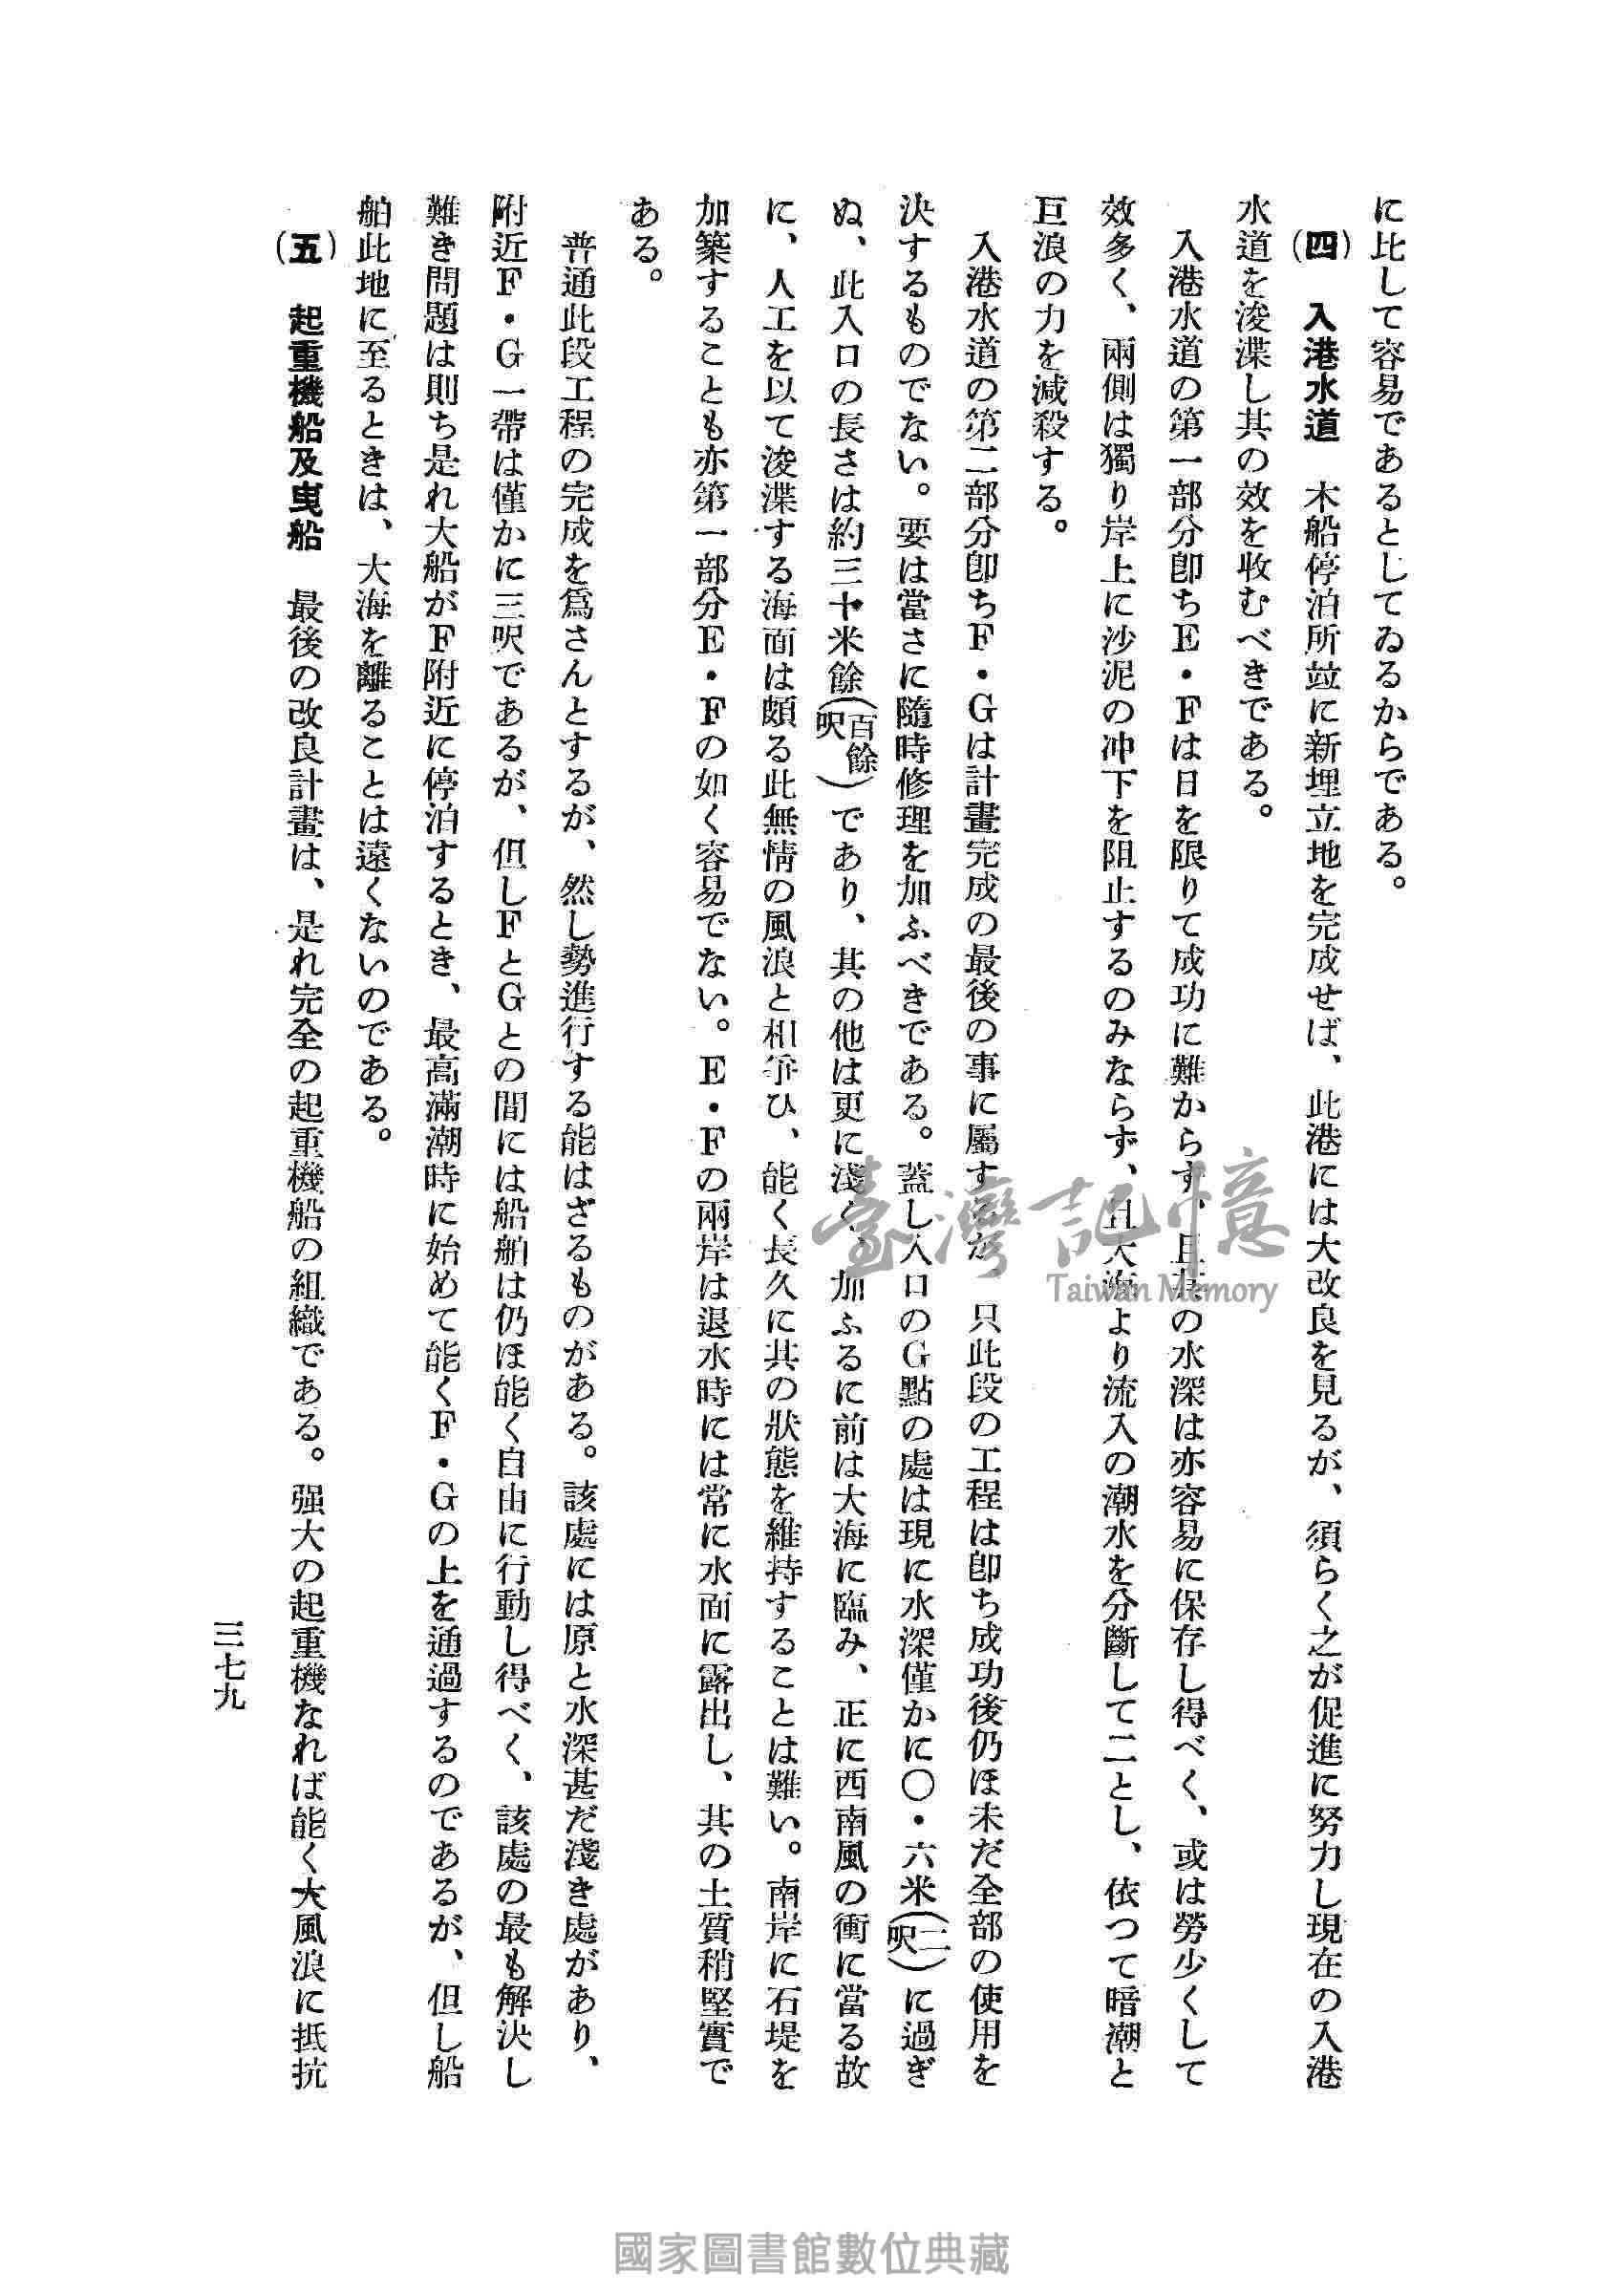 に比して容易であるとしてゐるからである。
(四) 入港水道 木船停泊所竝に新埋立地を完成せば、此港には大改良を見るが、須らく之が促進に努力し現在の入港
水道を浚渫し其の效を收むべきである。
入港水道の第一部分卽ちE・Fは日を限りて成功に難からず、且其の水深は亦容易に保存し得べく、或は勞少くして
效多く、兩側は獨り岸上に沙泥の冲下を阻止するのみならず、且大海より流入の潮水を分斷して二とし、依つて暗潮と
巨浪の力を減殺する。
入港水道の第二部分卽ちF・Gは計畫完成の最後の事に屬するが 只此段の工程は卽ち成功後仍ほ未だ全部の使用を
決するものでない。要は當さに隨時修理を加ふべきである。蓋し入口のG點の處は現に水深僅かに〇・六米(二呎)に過ぎ
ぬ、此入口の長さは約三十米餘(百餘呎)であり、其の他は更に淺く、加ふるに前は大海に臨み、正に西南風の衝に當る故
に、人工を以て浚渫する海面は頗る此無情の風浪と相爭ひ、能く長久に其の狀態を維持することは難い。南岸に石堤を
加築することも亦第一部分E・Fの如く容易でない。E・Fの兩岸は退水時には常に水面に露出し、其の土質稍堅實で
ある。
普通此段工程の完成を爲さんとするが、然し勢進行する能はざるものがある。該處には原と水深甚だ淺き處があり、
附近F・G一帶は僅かに三呎であるが、但しFとGとの間には船舶は仍ほ能く自由に行動し得べく、該處の最も解決し
難き問題は則ち是れ大船がF附近に停泊するとき、最高滿潮時に始めて能くF・Gの上を通過するのであるが、但し船
舶此地に至るときは、大海を離ることは遠くないのである。
(五) 起重機船及曳船 最後の改良計畫は、是れ完全の起重機船の組織である。强大の起重機なれば能く大風浪に抵抗
三七九
臺灣記憶
Taiwan Memory
國家圖書館數位典藏